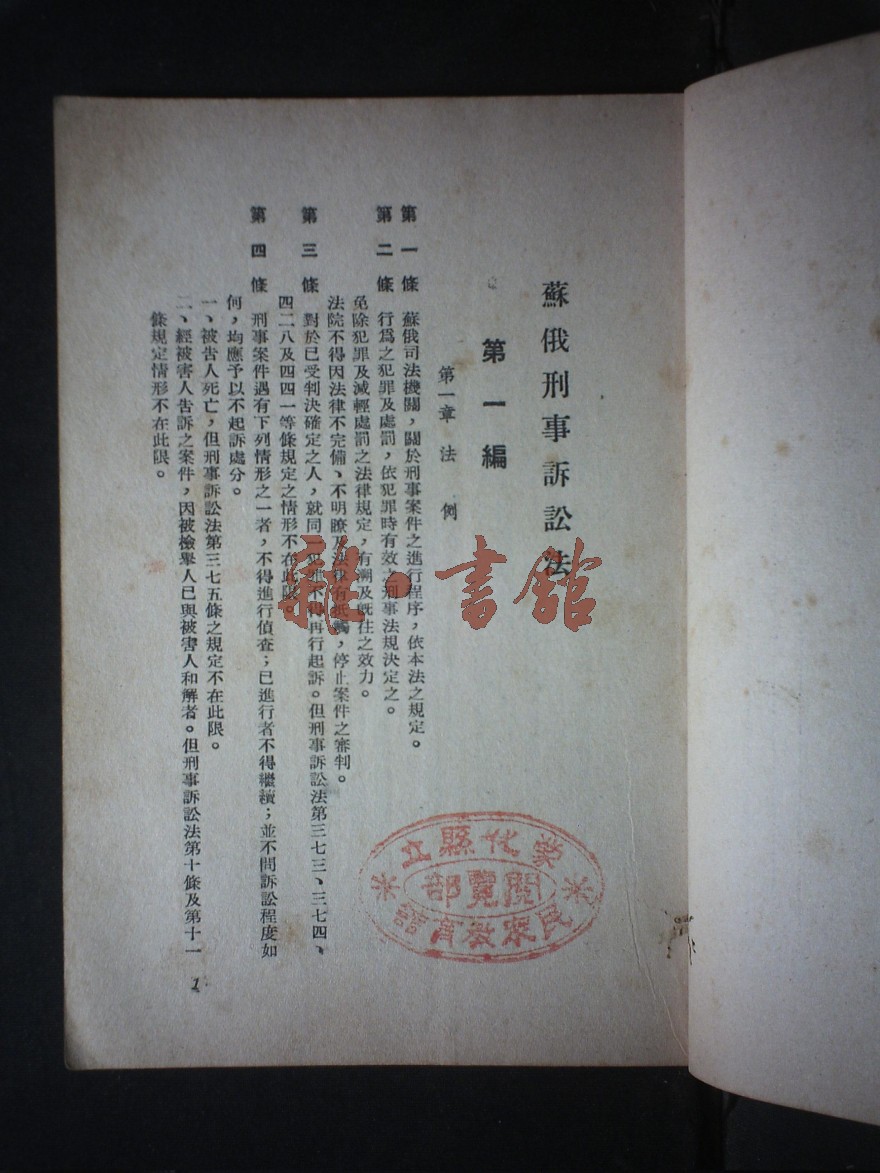 蘇俄刑事訴訟法
第一編
第一章 法例
第一條 蘇俄司法機關，關於刑事案件之進行程序，依本法之規定。
第二條 行爲之犯罪及處罰，依犯罪時有效之刑事法規決定之。
免除犯罪及減輕處罰之法律規定，有溯及既往之效力。
法院不得因法律不完備、不明瞭及法律有抵觸，停止案件之審判。
第三條 對於已受判決確定之人，就同一犯罪不得再行起訴。但刑事訴訟法第三七三、三七四、
四二八及四四一等條規定之情形不在此限。
第四條 刑事案件遇有下列情形之一者，不得進行偵查；已進行者不得繼續；並不問訴訟程度如
何，均應予以不起訴處分。
一、被告人死亡，但刑事訴訟法第三七五條之規定不在此限。
二、經被害人告訴之案件，因被檢舉人已與被害人和解者。但刑事訴訟法第十條及第十一
條規定情形不在此限。
1
雜·書館
化縣立
閱覽部
民眾教育